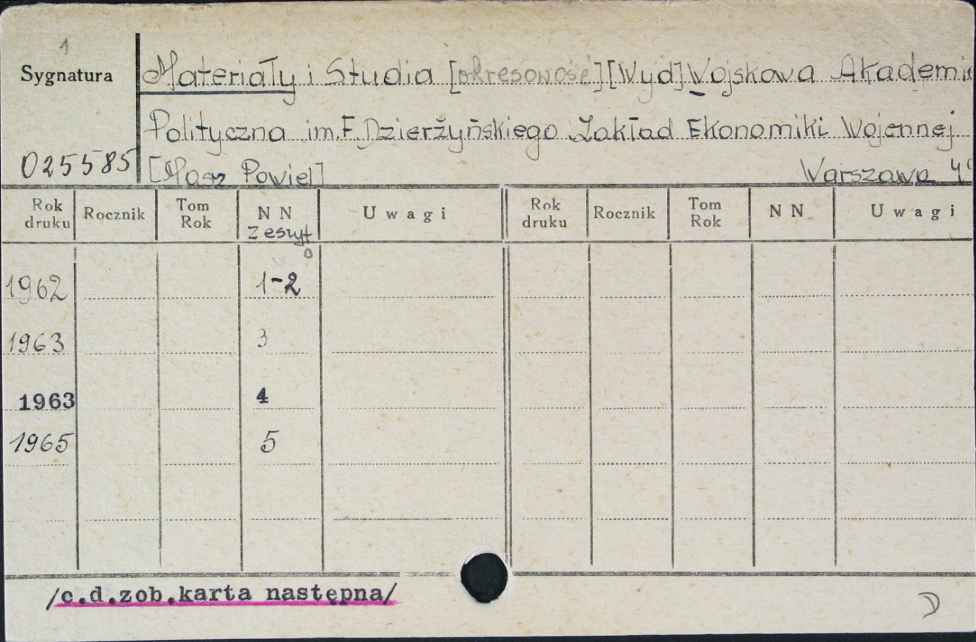 1
Sygnatura
Materiały i Studia [okresowość] [Wyd] Wojskowa Akademi
Polityczna im. F. Dzierżyńskiego Zakład Ekonomiki Wojennej
025585
[Masz Powiel] Warszawa 4°
Rok druku Rocznik Tom Rok NN Zeszyt Uwagi Rok druku Rocznik Tom Rok NN Uwagi
1962 1-2
1963 3
1963 4
1965 5
/c.d.zob.karta następna/